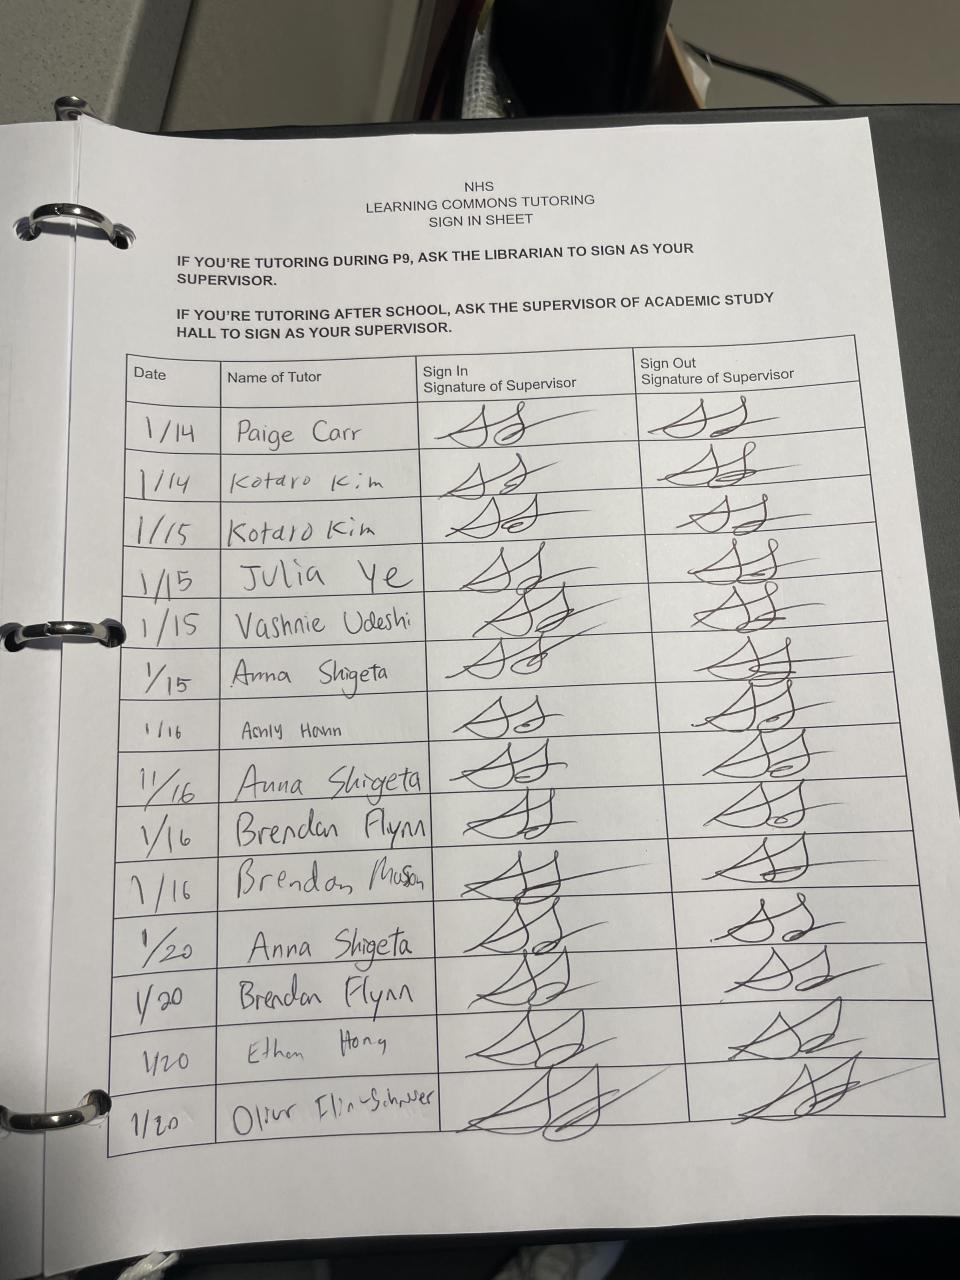 NHS
LEARNING COMMONS TUTORING
SIGN IN SHEET
IF YOU'RE TUTORING DURING P9, ASK THE LIBRARIAN TO SIGN AS YOUR
SUPERVISOR.
IF YOU'RE TUTORING AFTER SCHOOL, ASK THE SUPERVISOR OF ACADEMIC STUDY
HALL TO SIGN AS YOUR SUPERVISOR.
Date Name of Tutor Sign In Signature of Supervisor Sign Out Signature of Supervisor
1/14 Paige Carr
1/14 Kotaro Kim
1/15 Kotaro Kim
1/15 Julia Ye
1/15 Vashnie Udeshi
1/15 Anna Shigeta
1/16
11/16 Anna Shigeta
1/16 Brendan Flynn
1/16 Brendan Muson
1/20 Anna Shigeta
1/20 Brendan Flynn
1/20 Ethan Hong
1/20